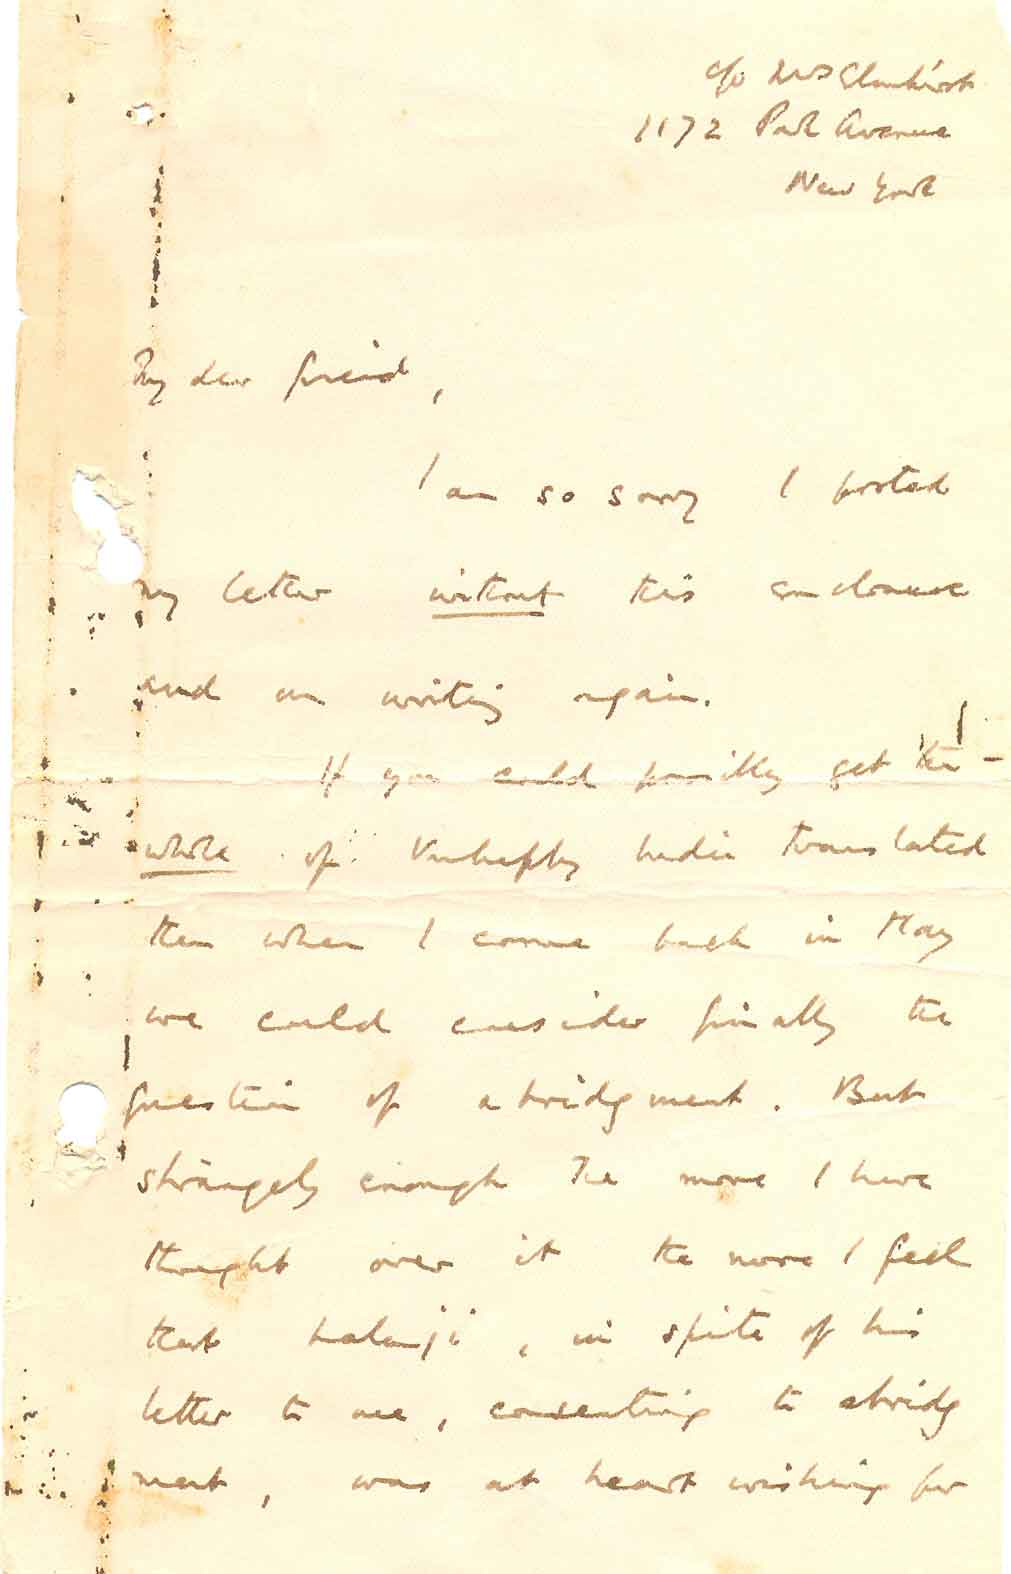 c/o Mrs Elmhirst
1172 Park Avenue
New York
My dear friend,
I am so sorry I posted
my letter without this enclosure
and am writing again.
If you could possibly get the
whole of Unhappy India translated
then when I come back in May
we could consider finally the
question of abridgment. But
strangely enough the more I have
thought over it the more I feel
that Lalaji, in spite of his
letter to me, consenting to abridg
ment, was at heart wishing for